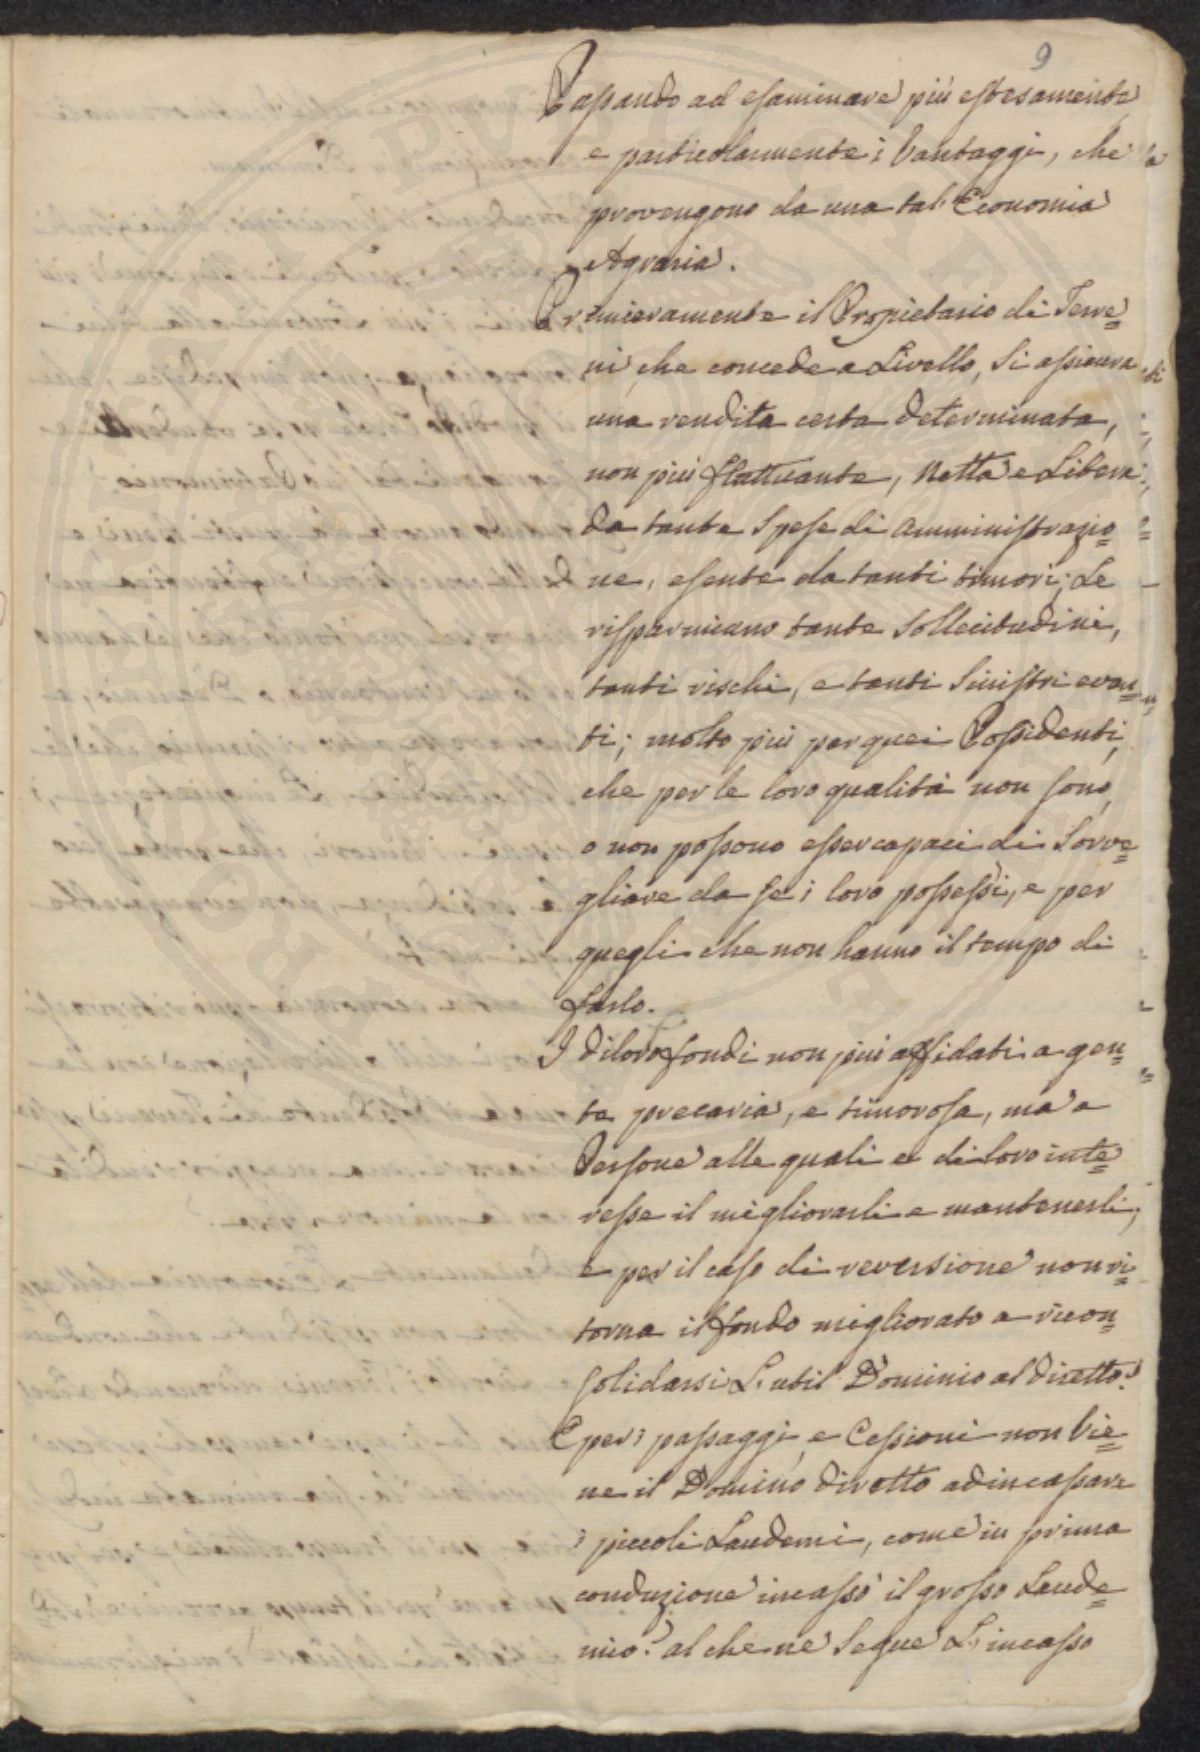 9
Passando ad esaminare più estesamente
e particolarmente i Vantaggi, che
provengono da una tal' Economia
Agraria.
Primieramente il Propietario di Terre=
ni che concede a Livello, si assicura
una rendita certa determinata,
non più flattuante, Netta e Libera
da tante Spese di Amministrazio=
ne, esente da tanti timori; Le
risparmiano tante Sollecitudini,
tanti rischi, e tanti Sinistri even=
ti; molto più per quei Possidenti,
che per le loro qualità non sono,
o non possono esser capaci di Sorve=
gliare da se i loro possessi, e per
quegli che non hanno il tempo di
farlo.
I di loro fondi non più affidati a gen=
te precaria, e timorosa, ma a
Persone alle quali è di loro inte=
resse il migliorarli e mantenerli;
e per il caso di reversione non ri=
torna il fondo migliorato a ricon=
solidarsi L'util Dominio al diretto?
E per i passaggi, e Cessioni non Vie=
ne il Domino diretto ad incassare
i piccoli Laudemi, come in prima
conduzione incassò il grosso Laude=
mio? al che ne Segue L'incasso